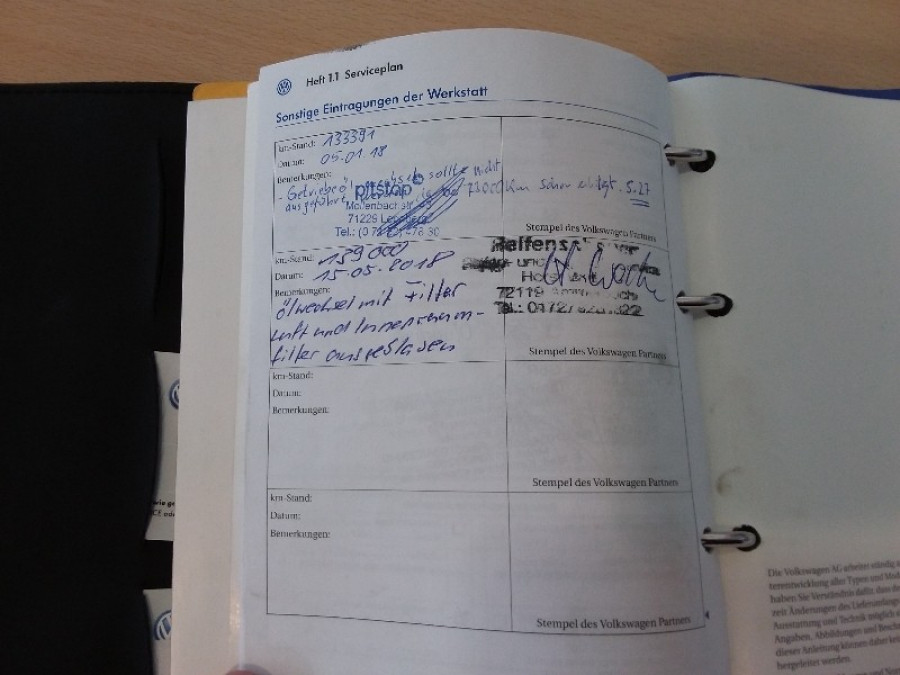 Heft 1.1 Serviceplan
Sonstige Eintragungen der Werkstatt
km-Stand: 133391
Datum: 05.01.18
Bemerkungen:
- Getriebeöl sollte nicht
ausgeführt 73000 km schon erledigt. S.27
pitstop
71229
Tel.:
Stempel des Volkswagen Partners
km-Stand: 139000
Datum: 15.05.2018
Bemerkungen:
Ölwechsel mit Filter
Luft und Innenraum-
filter
72119
Tel.: 0172/
Stempel des Volkswagen Partners
km-Stand:
Datum:
Bemerkungen:
Stempel des Volkswagen Partners
km-Stand:
Datum:
Bemerkungen:
Stempel des Volkswagen Partners
Die Volkswagen AG arbeitet ständig
terentwicklung aller Typen und
haben Sie Verständnis dafür, dass
zeit Änderungen des Lieferumfangs
Ausstattung und Technik möglich
Angaben, Abbildungen und
dieser Anleitung können daher
hergeleitet werden.